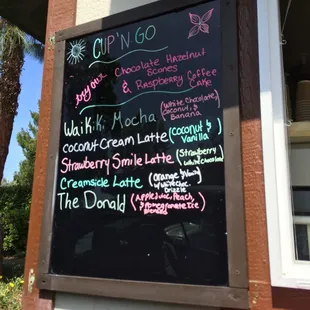 CUP'N GO
try our Chocolate Hazelnut
Scones
& Raspberry Coffee
Cake
Waikiki Mocha (White Chocolate,
Coconut, &
Banana
coconut Cream Latte (coconut &
Vanilla
Strawberry Smile Latte (Strawberry
& White chocolate)
Creamsicle Latte (Orange &
w/ white choc.
Drizzle
The Donald (Apple Juice, Peach,
& Pomegranate Ice
Blended